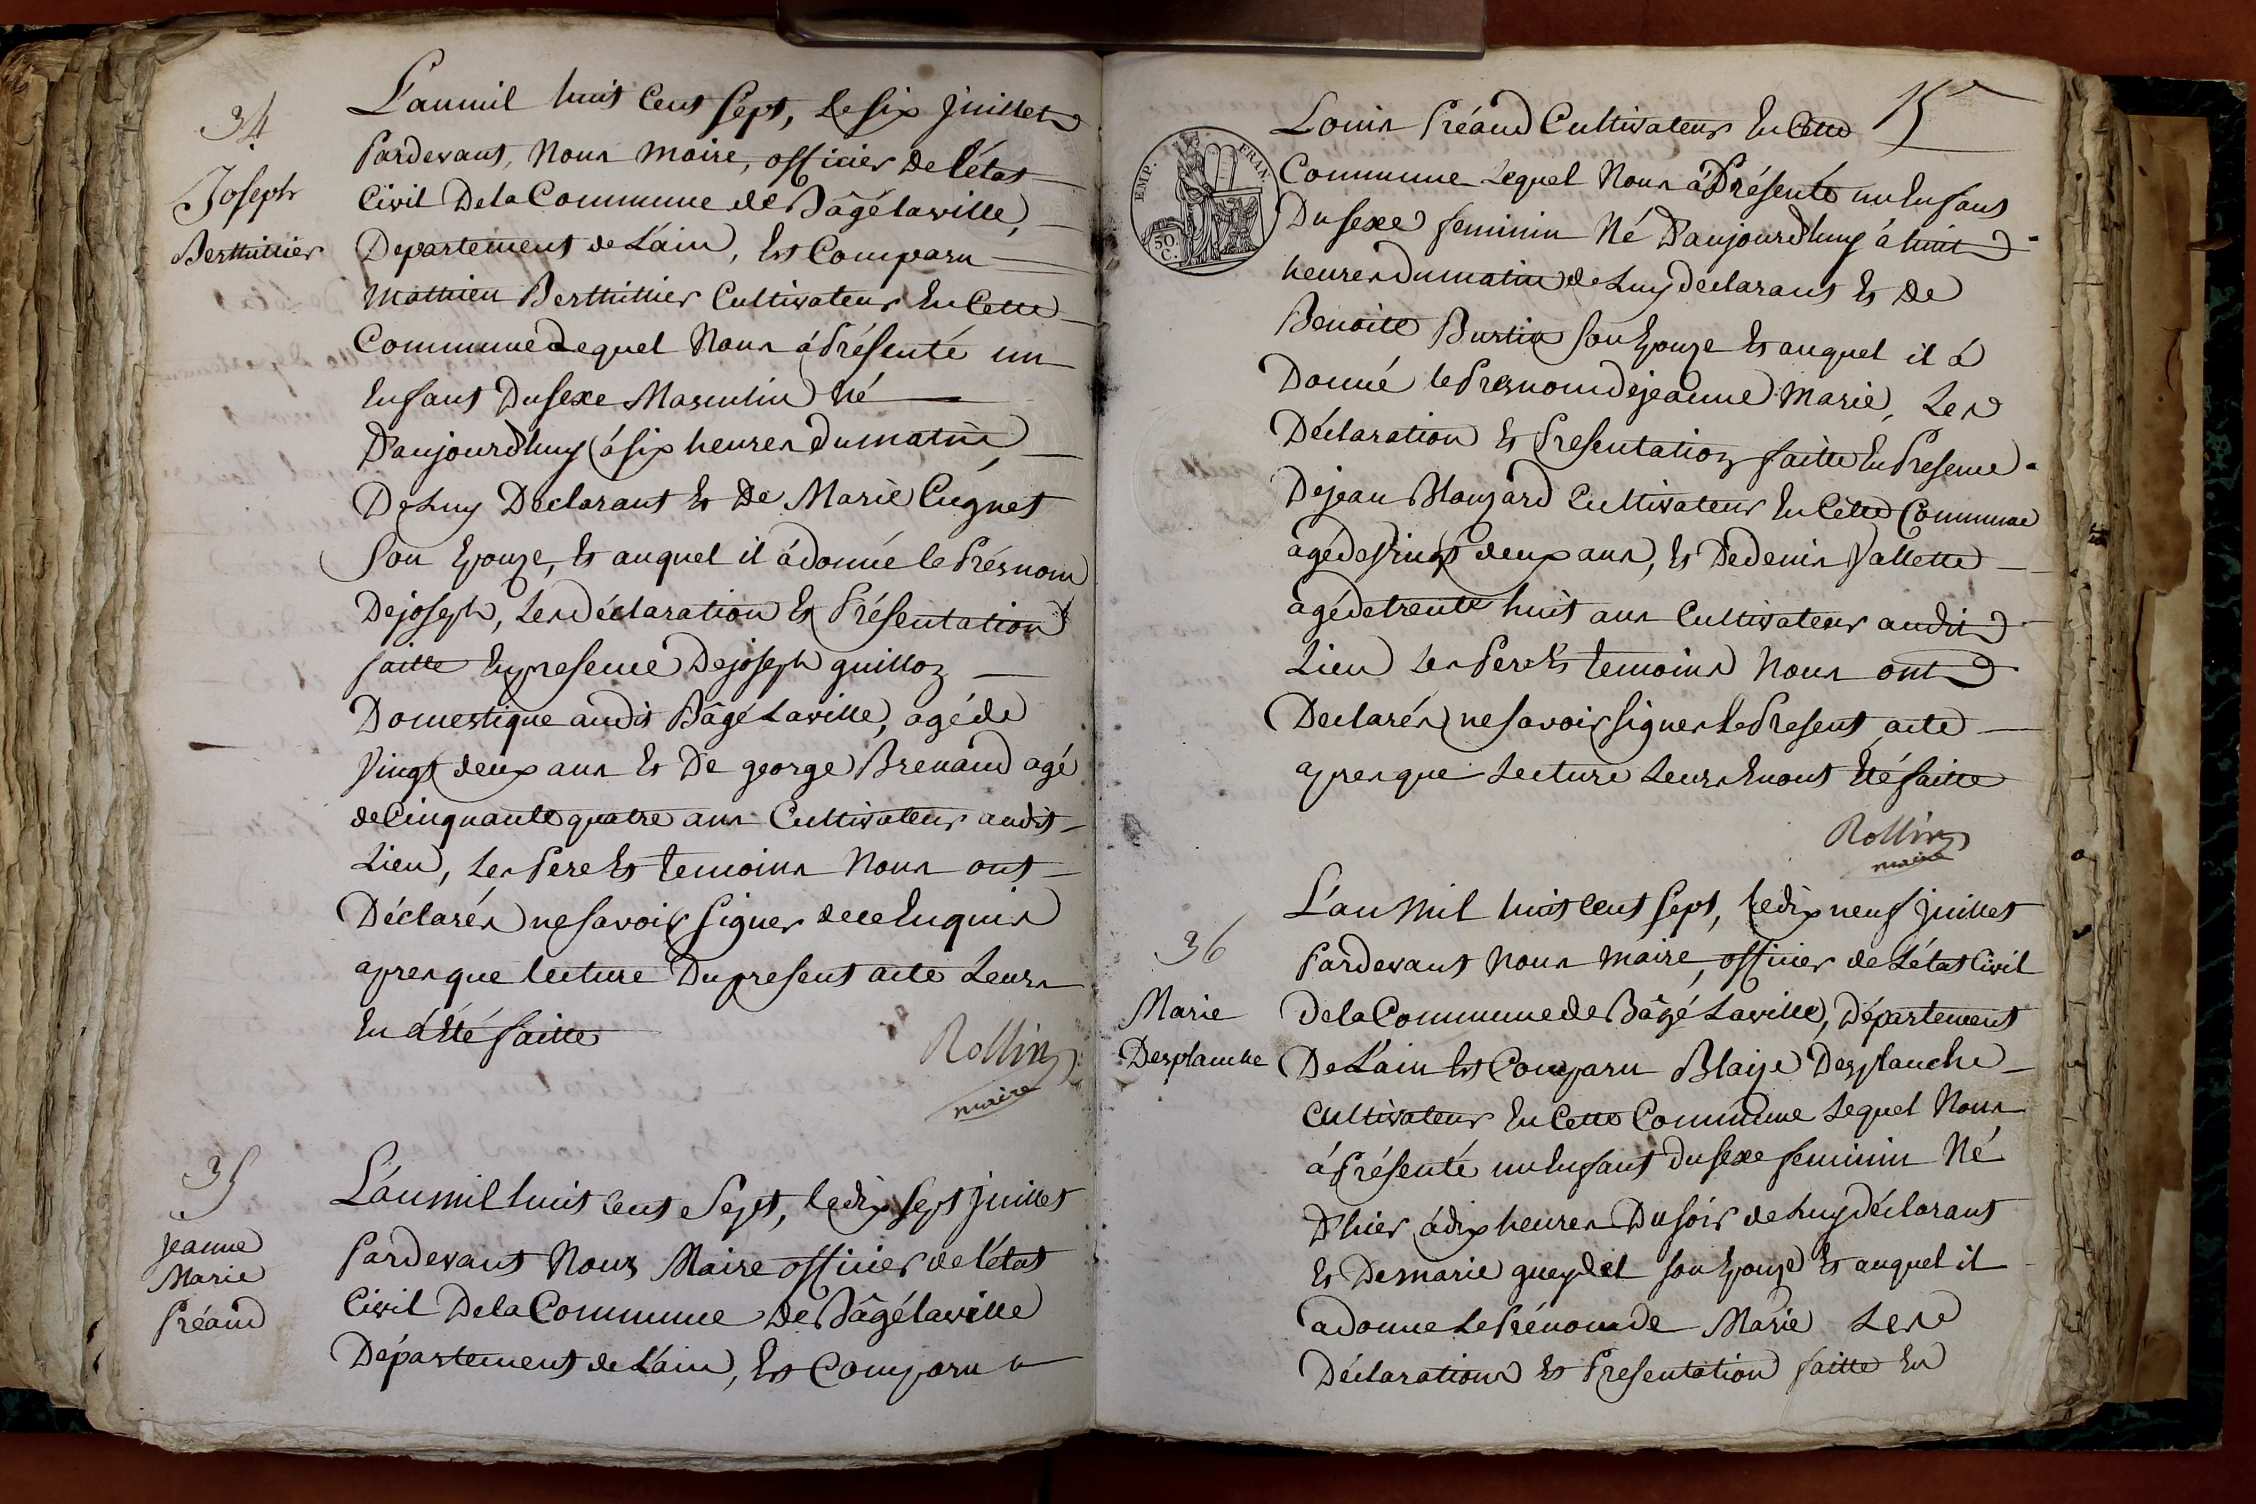 34
Joseph
Berthillier
L'an mil huit cent sept, le six juillet
Pardevant, Nous maire, officier de l'état
Civil De la Commune de Bâgé laville,
Departement de L'ain, Est Comparu
Mathieu Berthillier Cultivateur En Cette
Commune Lequel Nous á Présenté un
Enfant Du sexe Masculin Né
D'aujourd'huy á six heures du matin,
De Luy Déclarant Et De Marie Cugnet
Son Epouze, Et auquel il á donné le Présnom
De joseph, Les déclaration Et Présentation
faitte En presence De joseph guilloz
Domestique audit Bâgé Laville, agé de
Vingt deux ans Et De george Brenaud agé
de Cinquante quatre ans Cultivateur audit
Lieu, Les Pere Et temoins Nous ont
Déclarés ne savoir signer de ce Enquis
apres que lecture Du present acte Leurs
En á Eté faitte
Rollin
maire
35
jeanne
Marie
Préaud
L'án mil huit cent Sept, le dix sept juillet
Pardevant Nous Maire officier de l'état
Civil De la Commune De Bâgé laville
Département de L'ain, Est Comparu
15
EMP. FRAN.
50.
C.
Louis Préaud Cultivateur En Cette
Commune Lequel Nous á Présenté un Enfant
Du sexe feminin Né D'aujourd'huy á huit
heures du matin de Luy déclarant Et De
Benoite Burtin son Epouze Et auquel il á
Donné le Presnom de jeanne Marie, Les
Déclaration Et Presentation faitte En Presence
De jean Blanzard Cultivateur En Cette Commune
agé de Vingt deux ans, Et De denis Vallette
agé de trente huit ans Cultivateur audit
Lieu Les Pere Et temoins Nous ont
Declarés ne savoir signer Le Present acte
apres que Lecture Leurs En ont Eté faitte
Rollin
maire
36
Marie
Desplanche
L'an Mil huit cent sept, le dix neuf juillet
Pardevant Nous maire, officier de L'état Civil
De la Commune de Bâgé Laville, Département
De L'ain Est Comparu Blaize Desplanche
Cultivateur En Cette Commune Lequel Nous
á Présenté un Enfant Du sexe feminin Né
D'hier á dix heures Du soir de Luy déclarant
Et De marie gueydet son Epouze Et auquel il
a donne Le Prénom de Marie Les
Déclarations Et Presentation faitte En